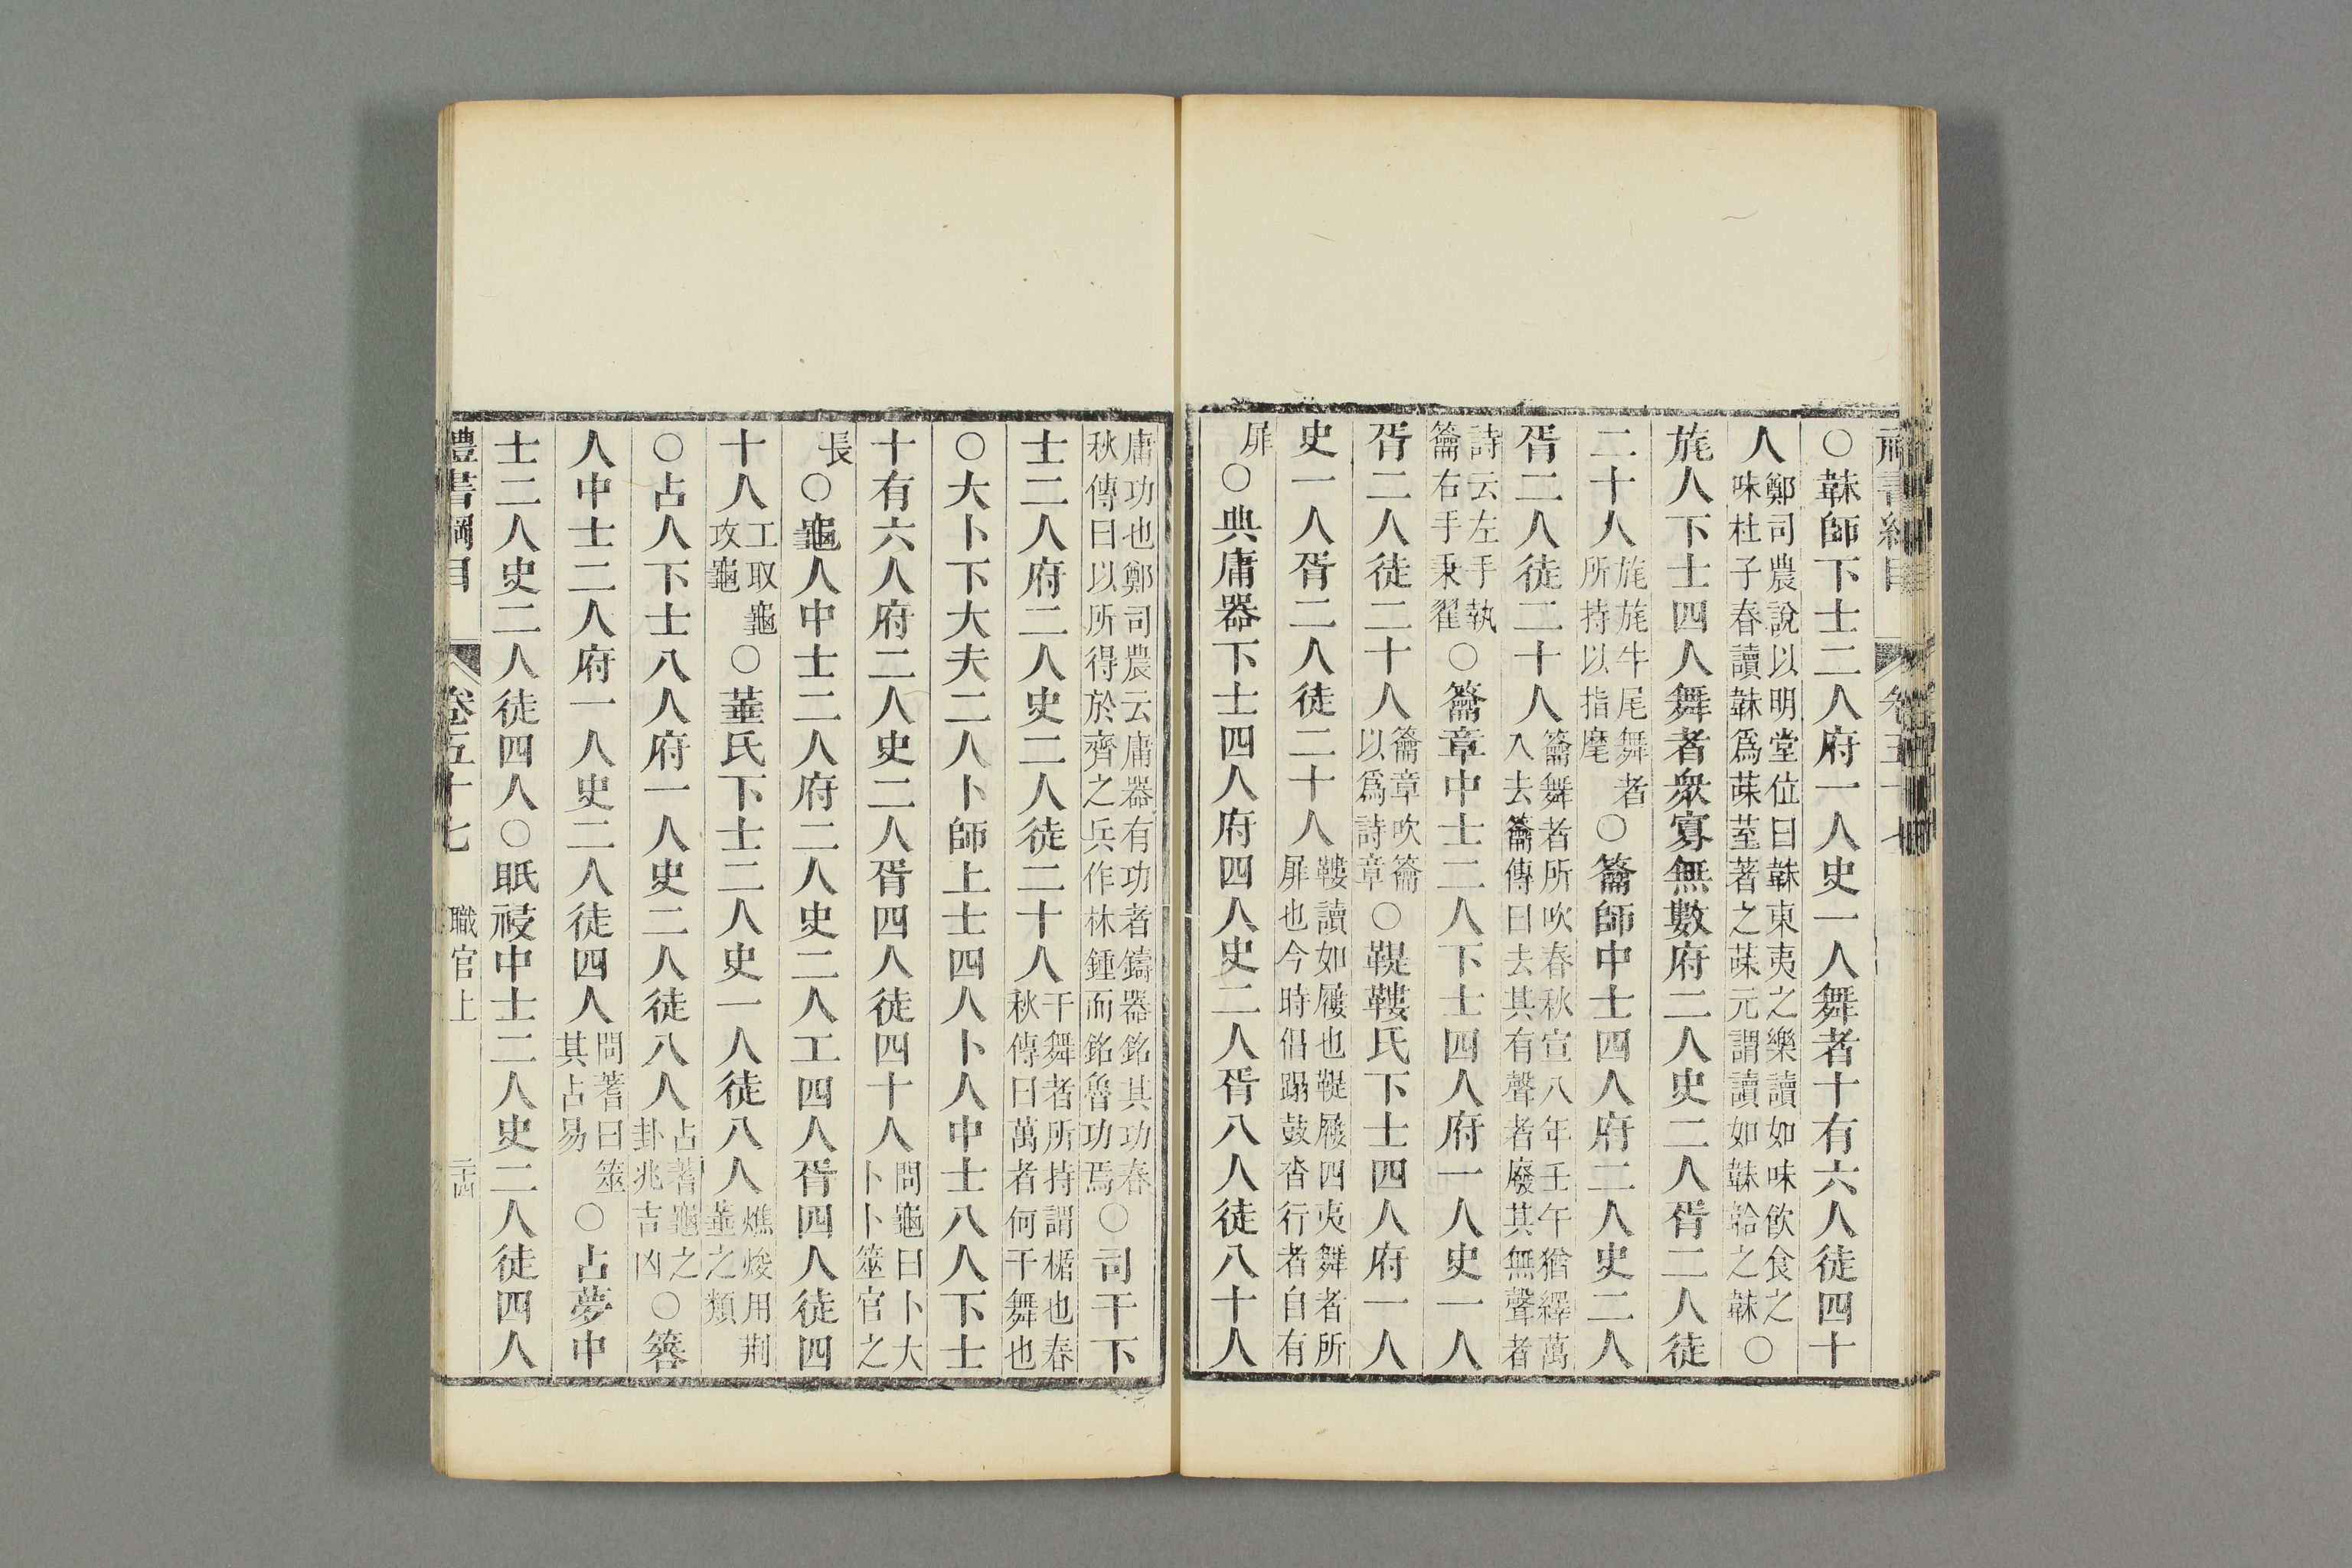 ○韎師下士二人府一人史一人舞者十有六人徒四十
人鄭司農說以明堂位曰韎東夷之樂讀如味飲食之
味杜子春讀韎爲菋荎著之菋元謂讀如韎韐之韎○
旄人下士四人舞者衆寡無數府二人史二人胥二人徒
二十人旄旄牛尾舞者
所持以指麾○籥師中士四人府二人史二人
胥二人徒二十人籥舞者所吹春秋宣八年壬午猶繹萬
入去籥傳曰去其有聲者廢其無聲者
詩云左手執
籥右手秉翟○籥章中士二人下士四人府一人史一人
胥二人徒二十人籥章吹籥
以爲詩章○鞮鞻氏下士四人府一人
史一人胥二人徒二十人鞻讀如屨也鞮屨四夷舞者所
屝也今時倡蹋鼓沓行者自有
屝○典庸器下士四人府四人史二人胥八人徒八十人
庸功也鄭司農云庸器有功者鑄器銘其功春
秋傳曰以所得於齊之兵作林鍾而銘魯功焉○司干下
士二人府二人史二人徒二十人干舞者所持謂楯也春
秋傳曰萬者何干舞也
○大卜下大夫二人卜師上士四人卜人中士八人下士
十有六人府二人史二人胥四人徒四十人問龜曰卜大
卜卜筮官之
長○龜人中士二人府二人史二人工四人胥四人徒四
十人工取龜
攻龜○菙氏下士二人史一人徒八人燋焌用荆
菙之類
○占人下士八人府一人史二人徒八人占蓍龜之
卦兆吉凶○簭
人中士二人府一人史二人徒四人問蓍曰筮
其占易○占夢中
士二人史二人徒四人○眡祲中士二人史二人徒四人
禮書綱目 卷五十七 職官上 二四